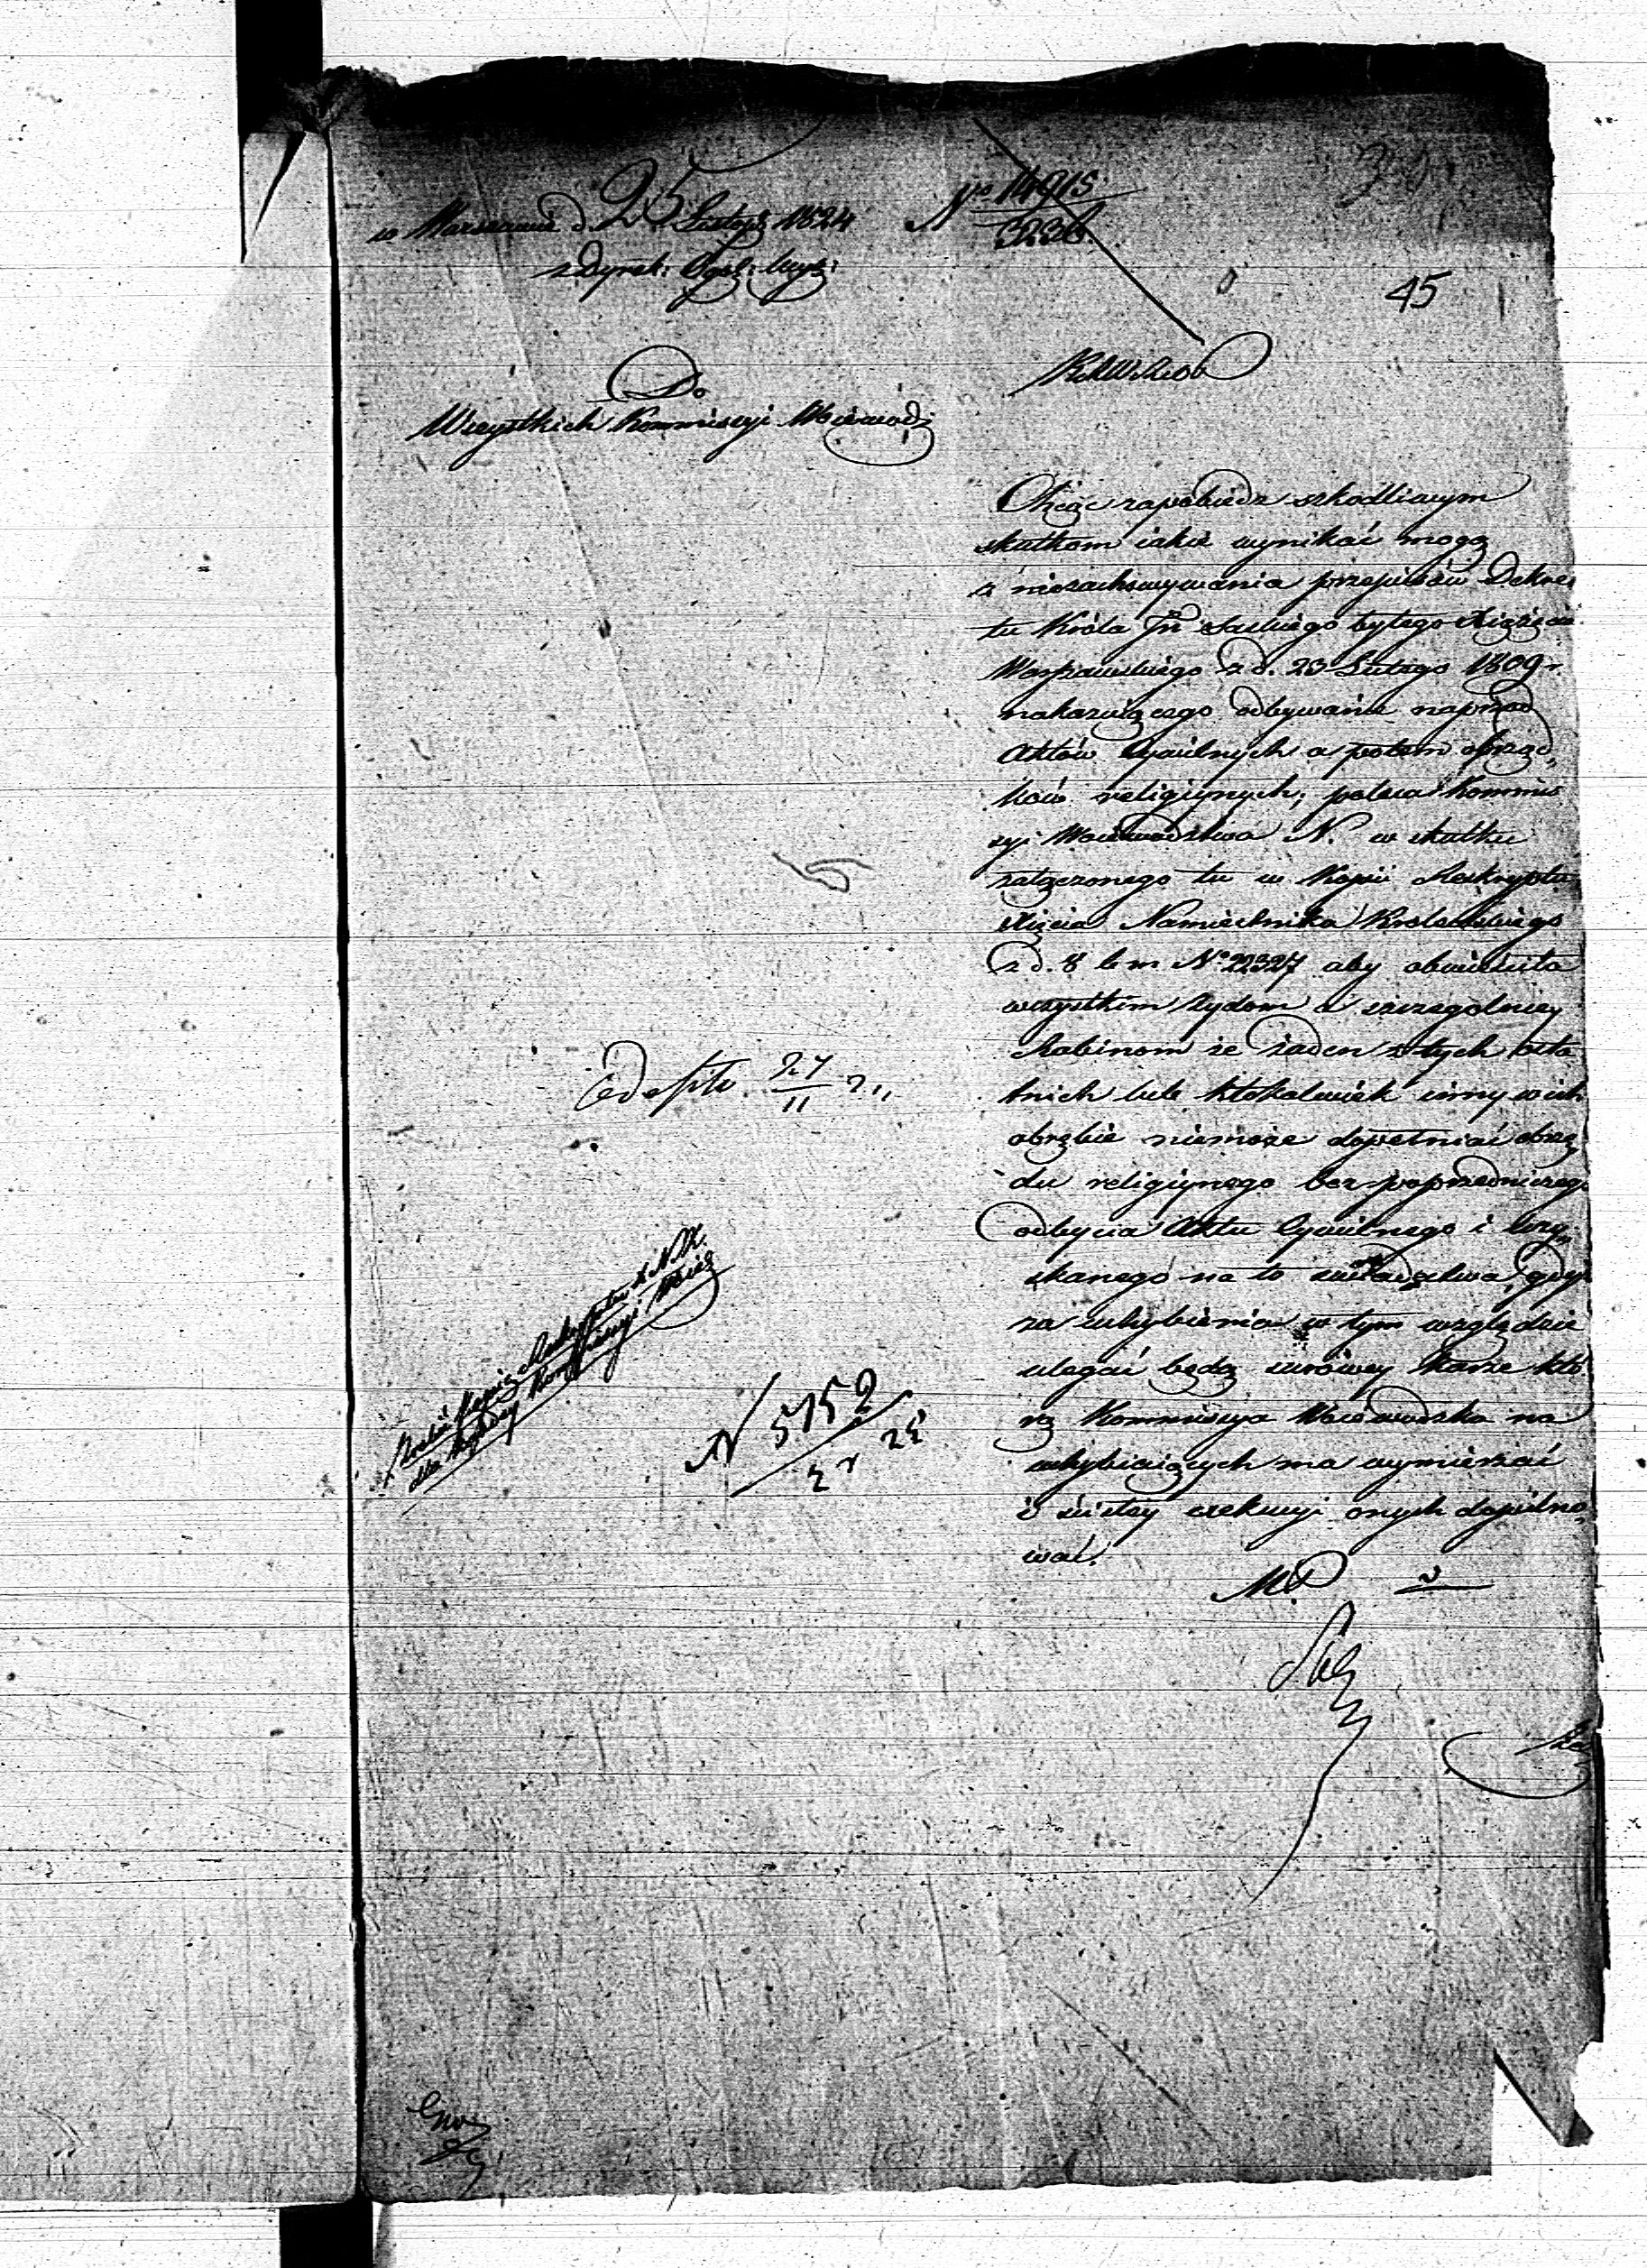 w Warszawie d. 25 Listop: 1824
z Dyrek: Ogól: Wyzn:
No 14915
5236
45
Do
Wszystkich Kommissyi Woiewodz:
KRWRiOP
Chcąc zapobiedz szkodliwym
skutkom iakie wynikać mogą
z niezachowywania przepisów Dekre-
tu Króla Jm Saskiego byłego Xiążęcia
Warszawskiego z d. 23 Lutego 1809 r.
nakazuiącego odbywanie naprzód
Aktów Cywilnych a potem obrząd,
ków religiynych; poleca Kommis
syi Woiewodztwa N. w skutku
załączonego tu w Kopii Reskryptu
Xięcia Namiestnika Królewskiego
z d. 8 b m No 22327 aby obwieściła
wszystkim Żydom a szczególniey
Rabinom że żaden z tych osta
tnich lub ktokolwiek inny w ich
obrębie niemoże dopełniać obrzę
du religiynego bez poprzedniczego
odbycia Aktu Cywilnego i Uzy,
skanego na to świadectwa, gdyż
za uchybienia w tym względzie
ulegać będą surowey karze któ
rą Kommissya Woiewodzka na
uchybiaiących ma wymierzać
i ścisłey exekucyi onych dopilno,
wać.
M.P.
27
11
Zrobić Kopią Reskryptu X N K.
dla każdey Kommissyi Woiew
N 5752